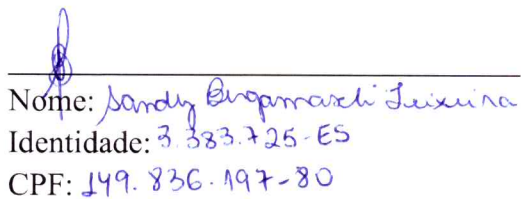 Nome: Sandy Bergamaschi Teixeira
Identidade: 3.383.725-ES
CPF: 149.836.197-80